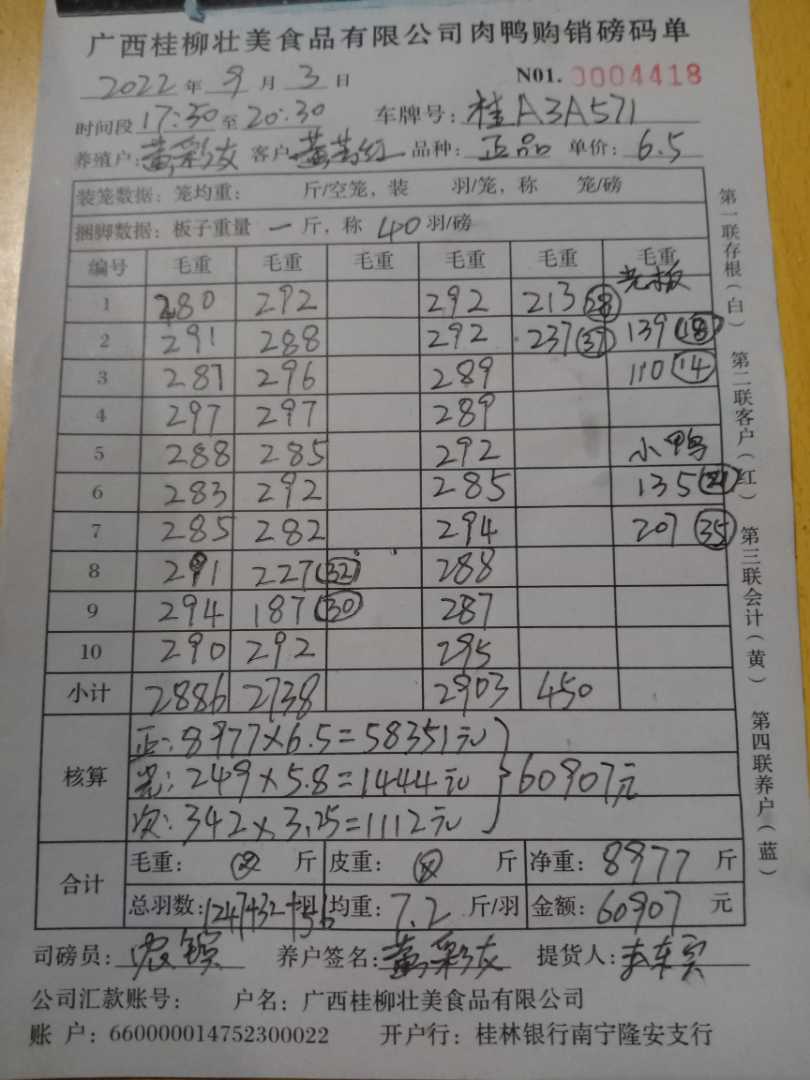 广西桂柳壮美食品有限公司肉鸭购销磅码单
2022 年 9 月 3 日 N01. 0004418
时间段 17:30 至 20:30 车牌号: 桂A3A571
养殖户: 黄彩友 客户 黄 红 品种: 正品 单价: 6.5
装笼数据: 笼均重: 斤/空笼, 装 羽/笼, 称 笼/磅
捆脚数据: 板子重量 一 斤, 称 40 羽/磅
编号 毛重 毛重 毛重 毛重 毛重 毛重
光板
1 280 292 292 213 (28)
2 291 288 292 237 (37) 139 (18)
3 287 296 289 110 (14)
4 297 297 289
5 288 285 292 小鸭
6 283 292 285 135 (21)
7 285 282 294 207 (35)
8 291 227 (32) 288
9 294 187 (30) 287
10 290 292 295
小计 2886 2738 2903 450
核算
正: 8977×6.5=58351元
光: 249×5.8=1444元 } 60907元
次: 342×3.25=1112元
合计
毛重: 斤 皮重: 斤 净重: 8977 斤
总羽数: 1247+32+56 羽 均重: 7.2 斤/羽 金额: 60907 元
司磅员: 农 养户签名: 黄彩友 提货人:
公司汇款账号: 户名: 广西桂柳壮美食品有限公司
账 户: 660000014752300022 开户行: 桂林银行南宁隆安支行
第一联存根(白) 第二联客户(红) 第三联会计(黄) 第四联养户(蓝)